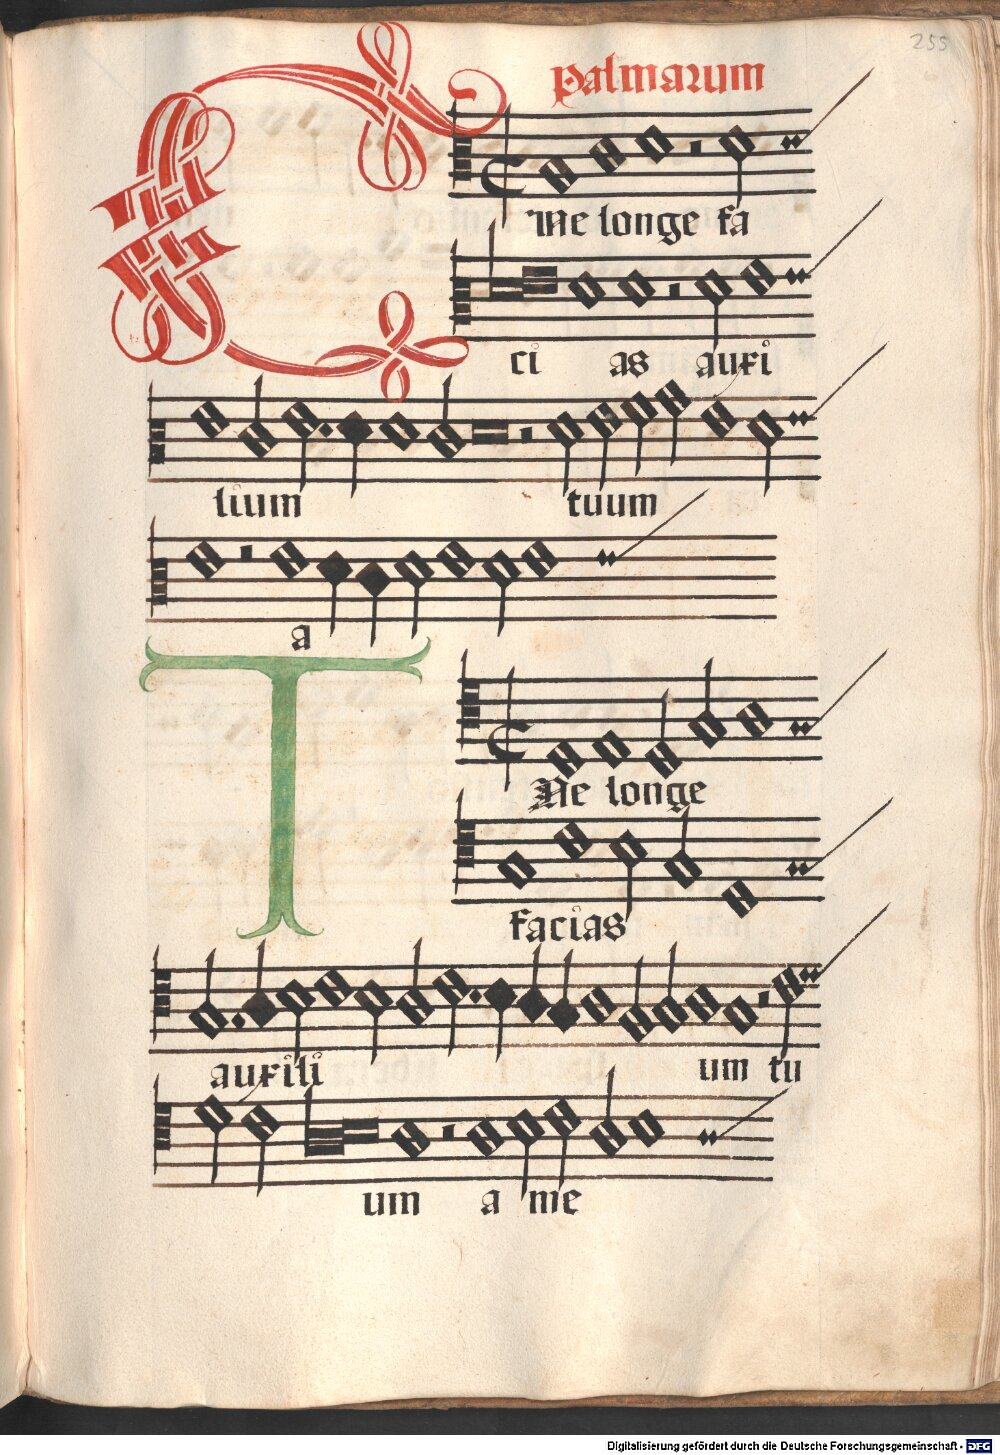 255
Palmarum
Ne longe fa
ci as auxi
lium tuum
a
T
Ne longe
facias
auxili um tu
um a me
Digitalisierung gefördert durch die Deutsche Forschungsgemeinschaft - DFG